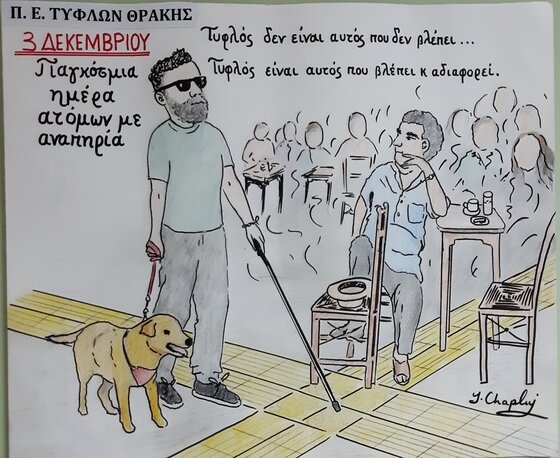 Π. Ε. ΤΥΦΛΩΝ ΘΡΑΚΗΣ
3 ΔΕΚΕΜΒΡΙΟΥ
Παγκόσμια
ημέρα
ατόμων με
αναπηρία
Τυφλός δεν είναι αυτός που δεν βλέπει...
Τυφλός είναι αυτός που βλέπει κ αδιαφορεί.